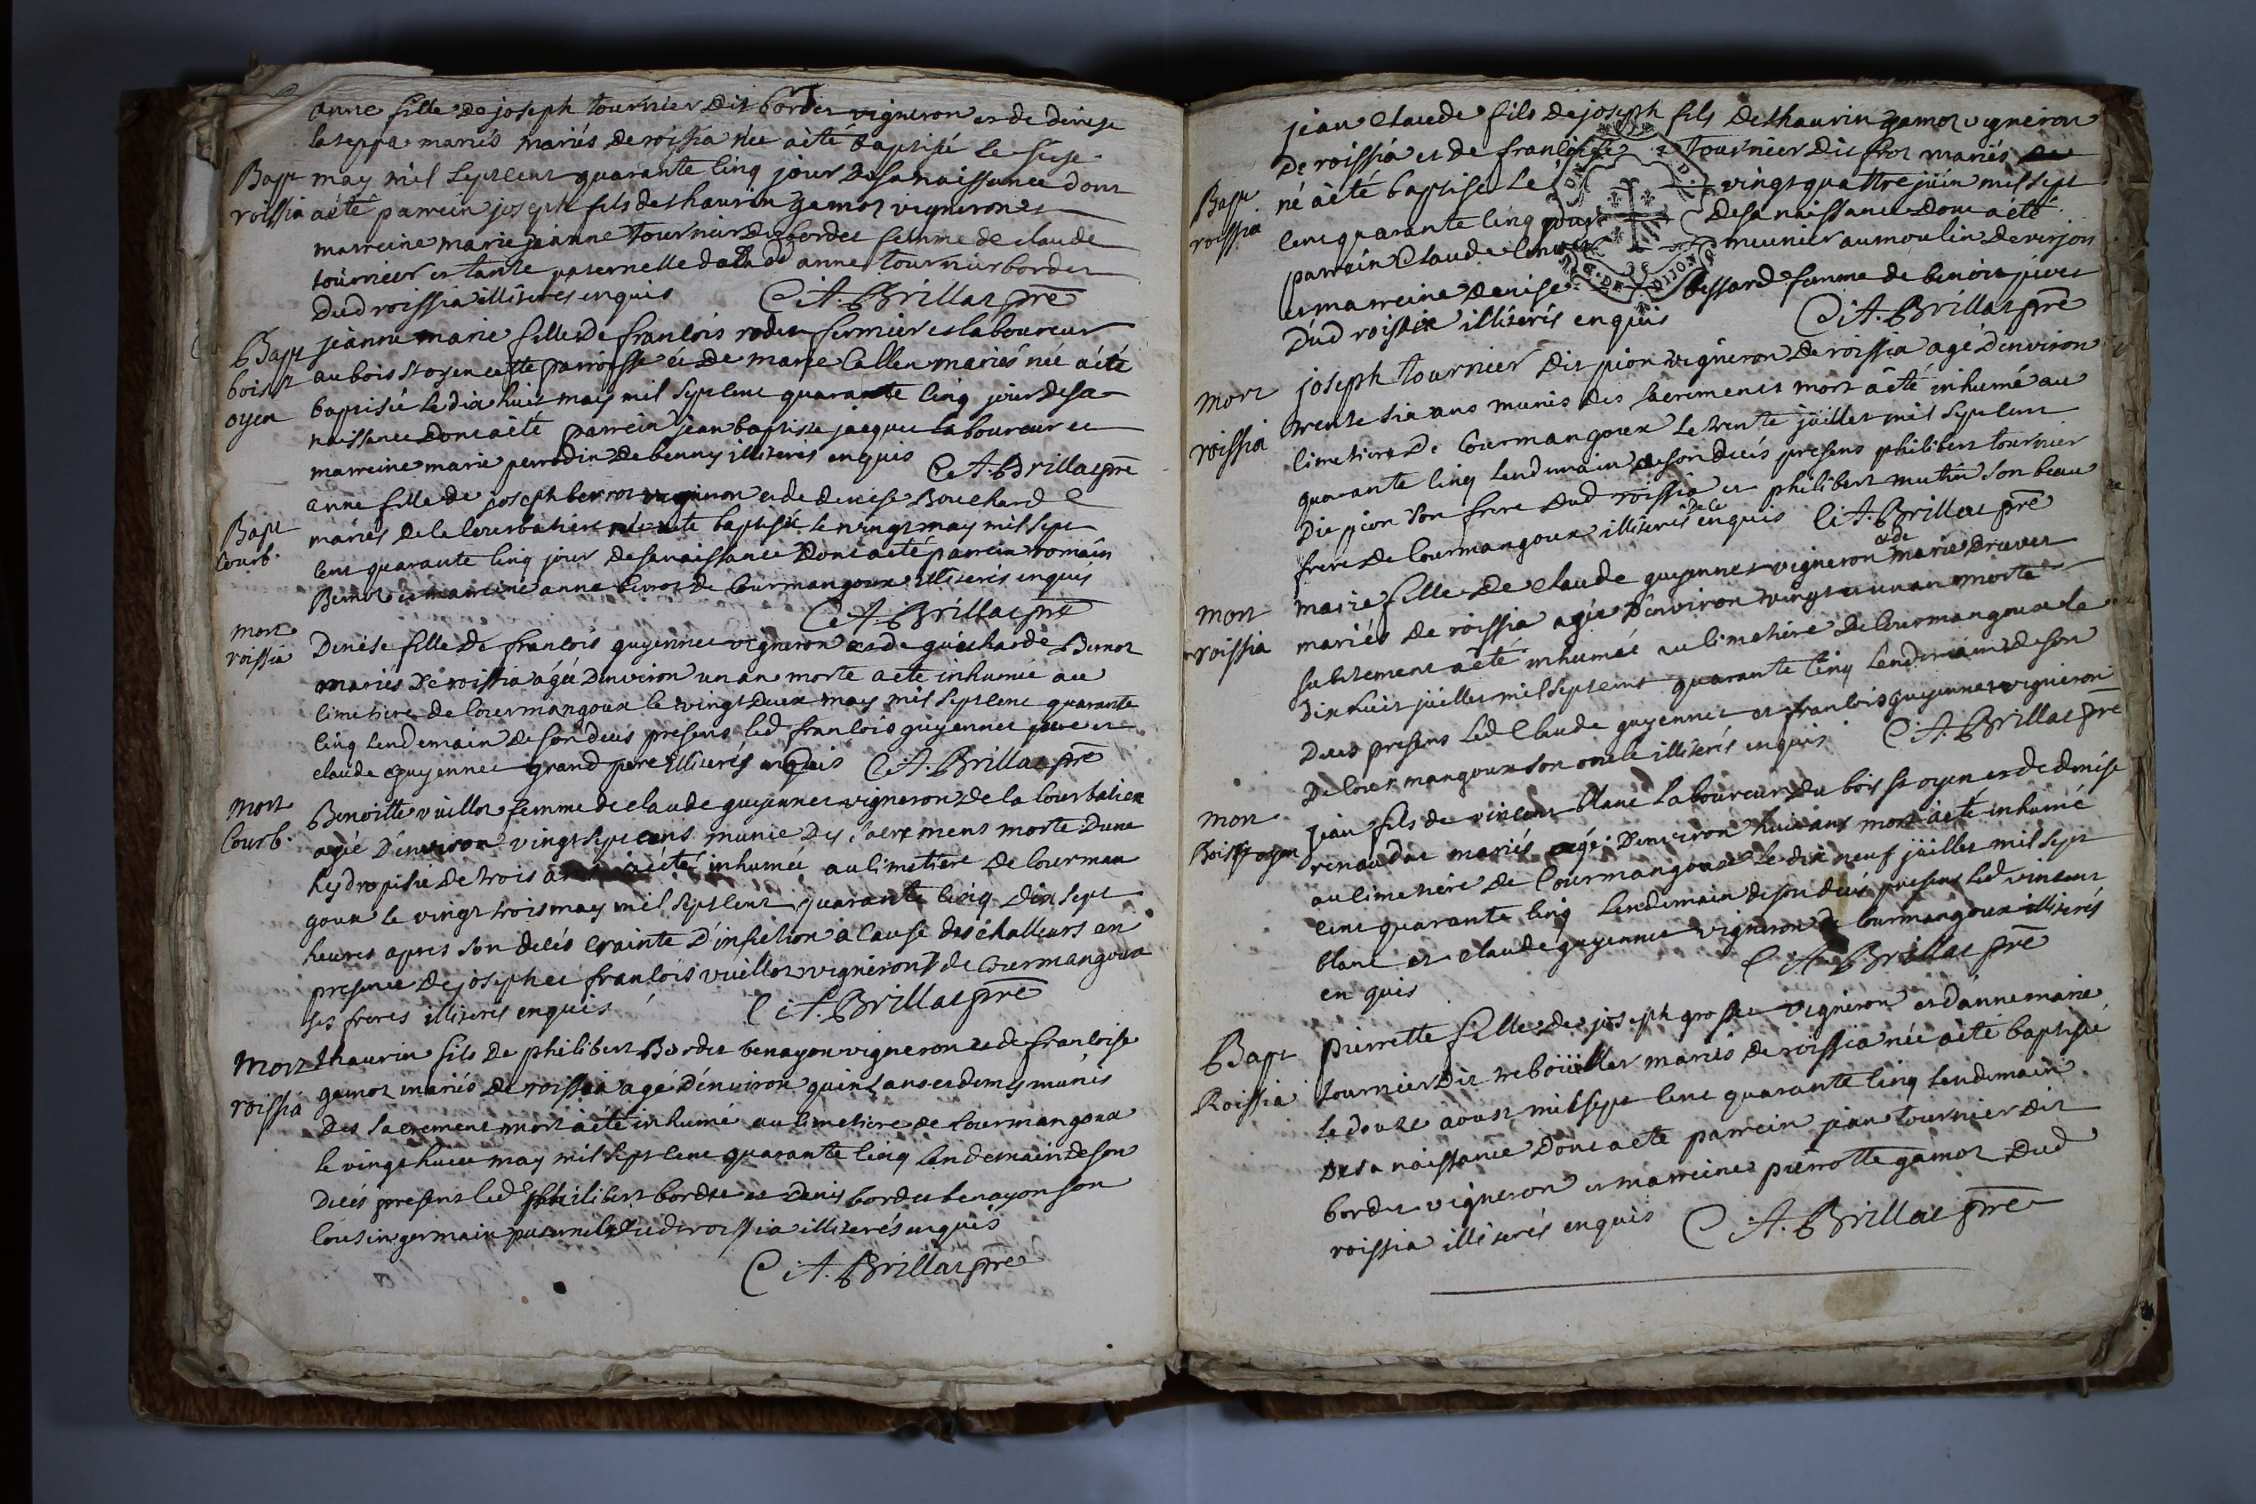 anne fille de joseph tournier dit bordet vigneron et de denise
lateppa mariés mariés de roissia née a été baptisé le seize
Bapt may mil sept cent quarante cinq jour de sa naissance dont
roissia a été parrein joseph fils de thaurin gamot vigneron et
marreine marie jeanne tournier dit bordet femme de claude
tournier et tante paternelle de lad anne tournier bordet
dud roissia illiterés enquis C. A. Brillat pre
Bapt jeanne marie fille de francois rodet fermier et laboureur
bois st au bois st oyen cette parroisse et de marie Callen mariés née a été
oyen baptisée le dix huit may mil sept cent quarante cinq jour de sa
naissance dont a été parrein jean baptiste jacquet laboureur et
marreine marie perrodin de benny illiterés enquis C. A. Brillat pre
anne fille de joseph bernot vigneron et de denise Bouchard
Bapt mariés de la Courbatiere née a été baptisée le vingt may mil sept
Courb. cent quarante cinq jour de sa naissance dont a été parrein romain
Bernot et marreine anne bernot de Courmangoux illiterés enquis
C. A. Brillat pre
mort
roissia Denise fille de francois guyennet vigneron et de guicharde Bernot
mariés de roissia agée denviron un an morte a été inhumée au
cimetiere de Courmangoux le vingt deux may mil sept cent quarante
cinq lendemain de son decés presens led francois guyennet pere et
claude guyennet grand pere illiterés enquis C. A. Brillat pre
mort Benoitte vuillot femme de claude guyennet vigneron de la Courbatiere
Courb. agée d'environ vingt sept ans munie des sacremens morte dune
hydropisie de trois ans a été inhumée au cimetiere de Courman
goux le vingt trois may mil sept cent quarante cinq dix sept
heures apres son decés crainte d'infection a cause des challeurs en
presence de joseph et francois vuillot vignerons de Courmangoux
ses freres illiterés enquis C. A. Brillat pre
mort thaurin fils de philibert Bordet benayon vigneron et de francoise
roissia gamot mariés de roissia agé d'environ quinz ans et demy munis
des sacremens mort a été inhumé au cimetiere de Courmangoux
le vingt huit may mil sept cent quarante cinq lendemain de son
decés presens led philibert bordet et Denis bordet benayon son
cousin germain paternel dud roissia illiterés enquis
C. A. Brillat pre
jean claude fils de joseph fils de thaurin gamot vigneron
de roissia et de francoise tournier dit frot mariés
Bapt né a été baptisé le vingt quattre juin mil sept
roissia cent quarante cinq jour de sa naissance dont a été
parrein Claude meunier au moulin de verjon
et marreine denise bessard femme de benoit
dud roissia illiterés enquis C. A. Brillat pre
mort joseph tournier dit pion vigneron de roissia agé d'environ
roissia trente six ans munis des sacremens mort a été inhumé au
cimetiere de Courmangoux le trente juillet mil sept cent
quarante cinq lendemain de son decés presens philibert tournier
dit pion son frere dud roissia et philibert mutin son beau
frere de Courmangoux illiterés enquis C. A. Brillat pre
mort marie fille de claude guyennet vigneron et de marie druvet
roissia mariés de roissia agée d'environ vingt et un an morte
subitement a été inhumée au cimetiere de Courmangoux le
dix huit juillet mil sept cent quarante cinq lendemain de son
deces presens led Claude guyennet et francois guyennet vigneron
de Courmangoux son oncle illiterés enquis C. A. Brillat pre
mort jean fils de vincent blanc laboureur du bois st oyen et de denise
Bois st oyen renaudat mariés agé denviron huit ans mort a été inhumé
au cimetiere de Courmangoux le dix neuf juillet mil sept
cent quarante cinq lendemain de son decés presens led vincent
blanc et claude guyennet vigneron de Courmangoux illiterés
enquis C. A. Brillat pre
Bapt pierrette fille de joseph grosset vigneron et d'anne marie
Roissia tournier dit rebouillet mariés de roissia née a été baptisée
le douze aoust mil sept cent quarante cinq lendemain
de sa naissance dont a été parrein jean tournier dit
bordet vigneron et marreine pierrotte gamot dud
roissia illiterés enquis C. A. Brillat pre